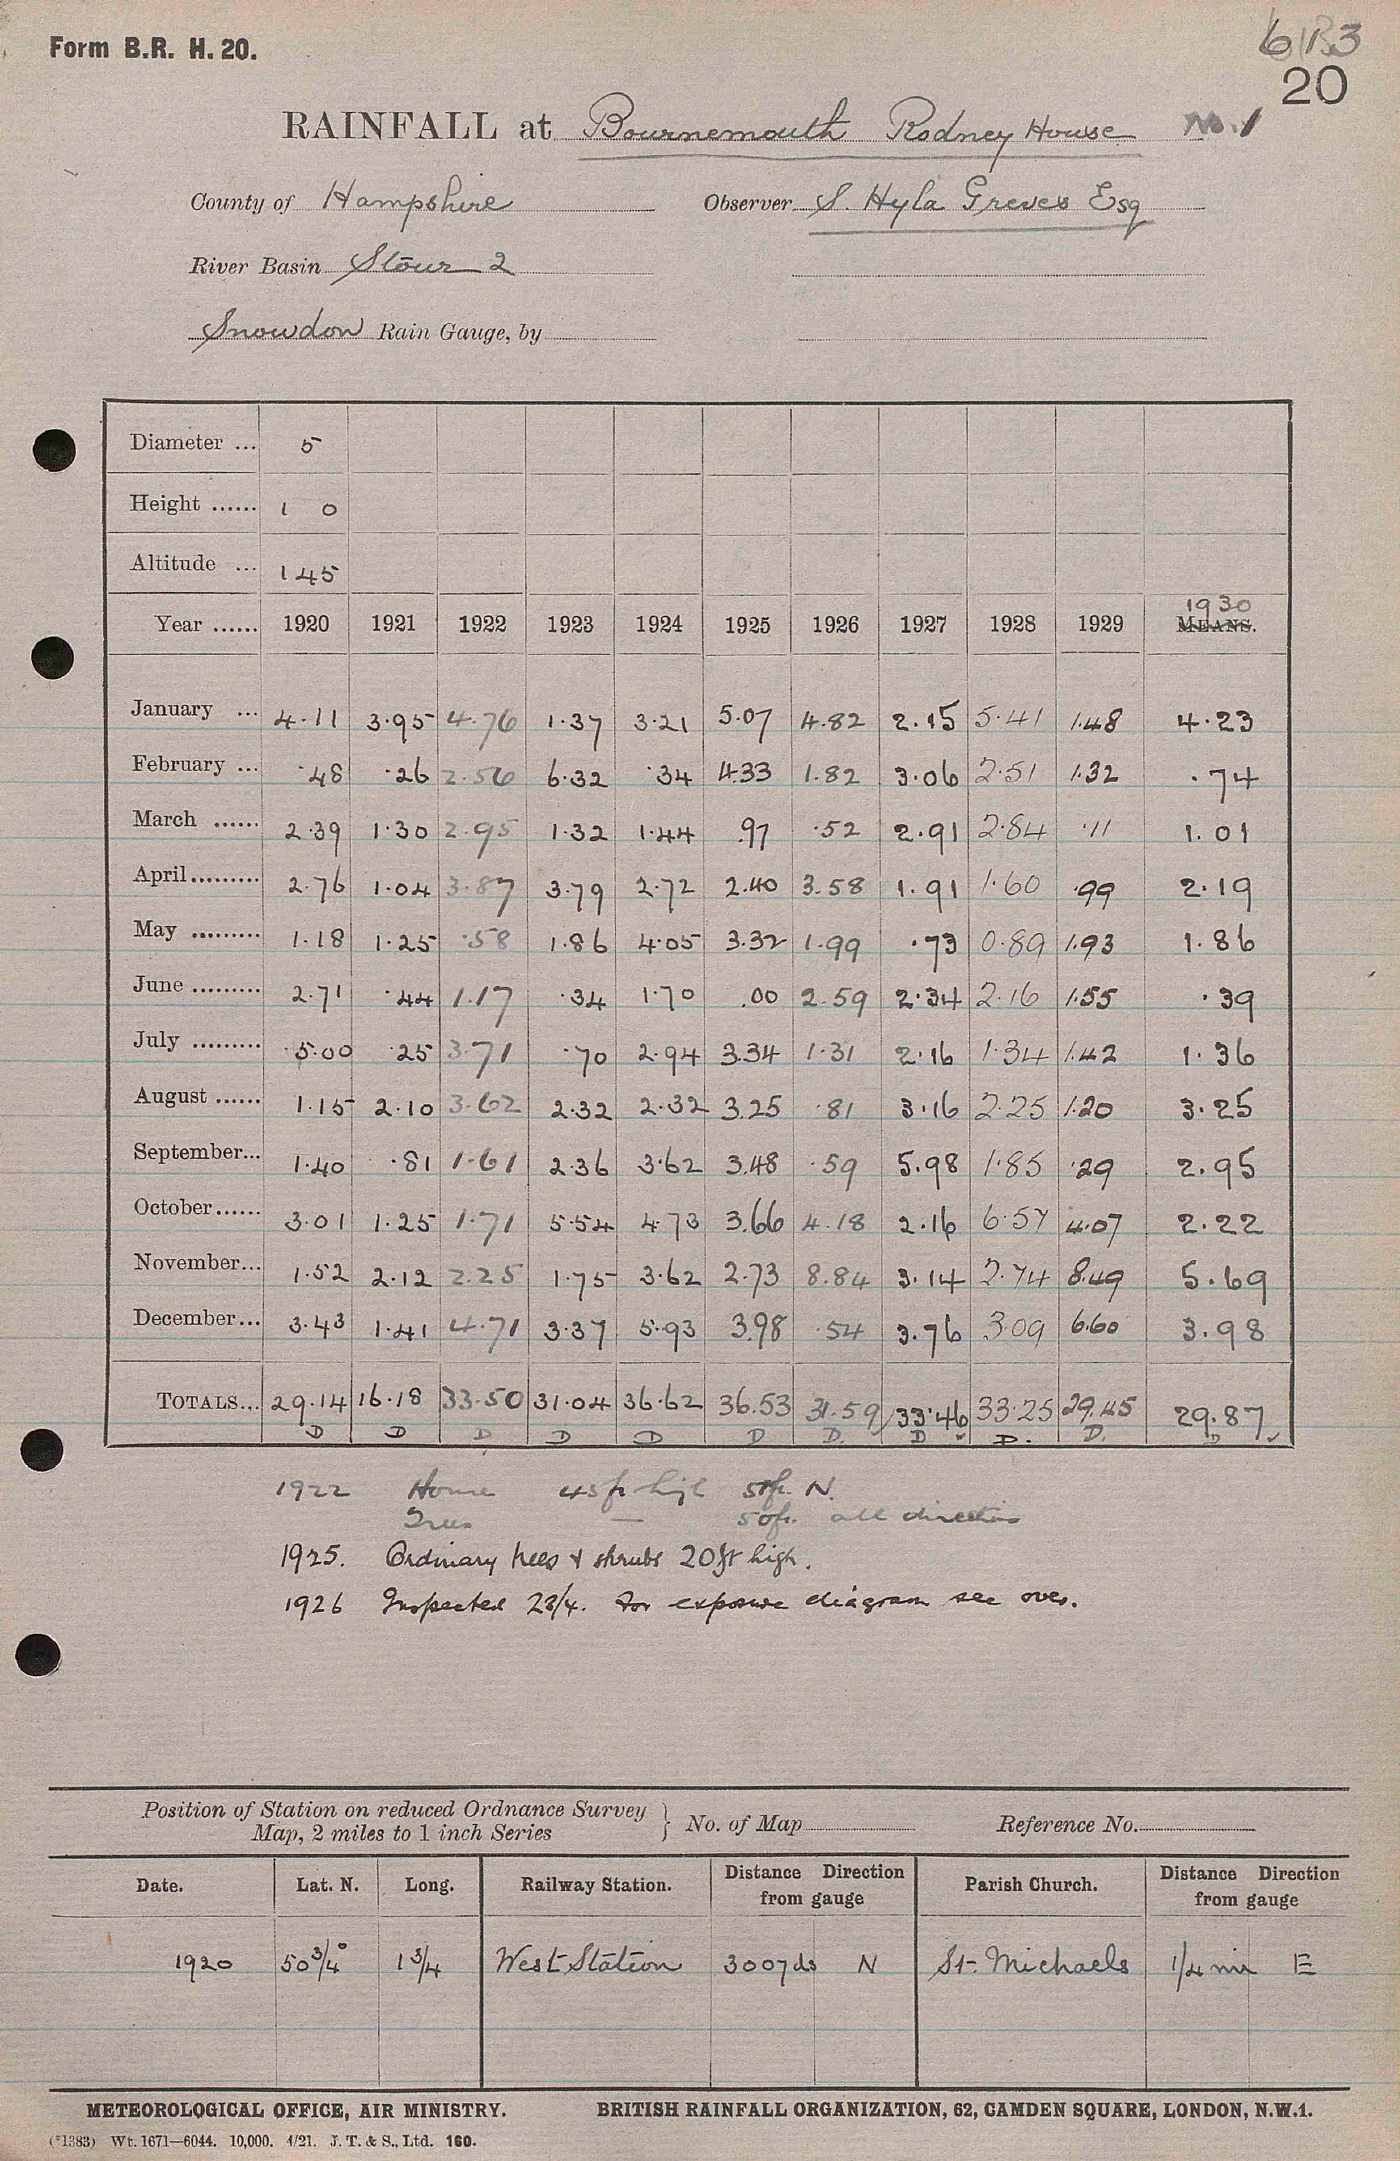 Form B.R. H. 20.
20
RAINFALL at Bournemouth Rodney House No. 1
County of Hampshire Observer S. Hyla Greves Esq
River Basin Stour 2
Snowdon Rain Gauge, by
Diameter ... 5
Height ...... 1 0
Altitude ... 145
1930
Year ...... 1920 1921 1922 1923 1924 1925 1926 1927 1928 1929 MEANS.
January ... 4.11 3.95 4.76 1.37 3.21 5.07 4.82 2.15 5.41 1.48 4.23
February ... .48 .26 2.56 6.32 .34 4.33 1.82 3.06 2.51 1.32 .74
March ...... 2.39 1.30 2.95 1.32 1.44 .97 .52 2.91 2.84 .11 1.01
April......... 2.76 1.04 3.87 3.79 2.72 2.40 3.58 1.91 1.60 .99 2.19
May ......... 1.18 1.25 .58 1.86 4.05 3.32 1.99 .73 0.89 1.93 1.86
June ......... 2.71 .44 1.17 .34 1.70 .00 2.59 2.34 2.16 1.55 .39
July ......... 5.00 .25 3.71 .70 2.94 3.34 1.31 2.16 1.34 1.42 1.36
August ...... 1.15 2.10 3.62 2.32 2.32 3.25 .81 3.16 2.25 1.20 3.25
September... 1.40 .81 1.61 2.36 3.62 3.48 .59 5.98 1.85 .29 2.95
October...... 3.01 1.25 1.71 5.54 4.73 3.66 4.18 2.16 6.57 4.07 2.22
November... 1.52 2.12 2.25 1.75 3.62 2.73 8.84 3.14 2.74 8.49 5.69
December... 3.43 1.41 4.71 3.37 5.93 3.98 .54 3.76 3.09 6.60 3.98
TOTALS... 29.14 16.18 33.50 31.04 36.62 36.53 31.59 33.46 33.25 29.45 29.87
D D D D D D D. D D. D. D
1922 House 45ft high 51ft. N.
Trees — 50ft. all directions
1925. Ordinary trees & shrubs 20ft high.
1926 Inspected 28/4. For exposure diagram see over.
Position of Station on reduced Ordnance Survey
Map, 2 miles to 1 inch Series } No. of Map Reference No.
Date. Lat. N. Long. Railway Station. Distance Direction from gauge Parish Church. Distance Direction from gauge
1920 50 3/4° 1 3/4 West Station 300yds N St. Michaels 1/4 mi E
METEOROLOGICAL OFFICE, AIR MINISTRY. BRITISH RAINFALL ORGANIZATION, 62, CAMDEN SQUARE, LONDON, N.W.1.
(*1383) Wt. 1671—6044. 10,000. 4/21. J. T. & S., Ltd. 160.